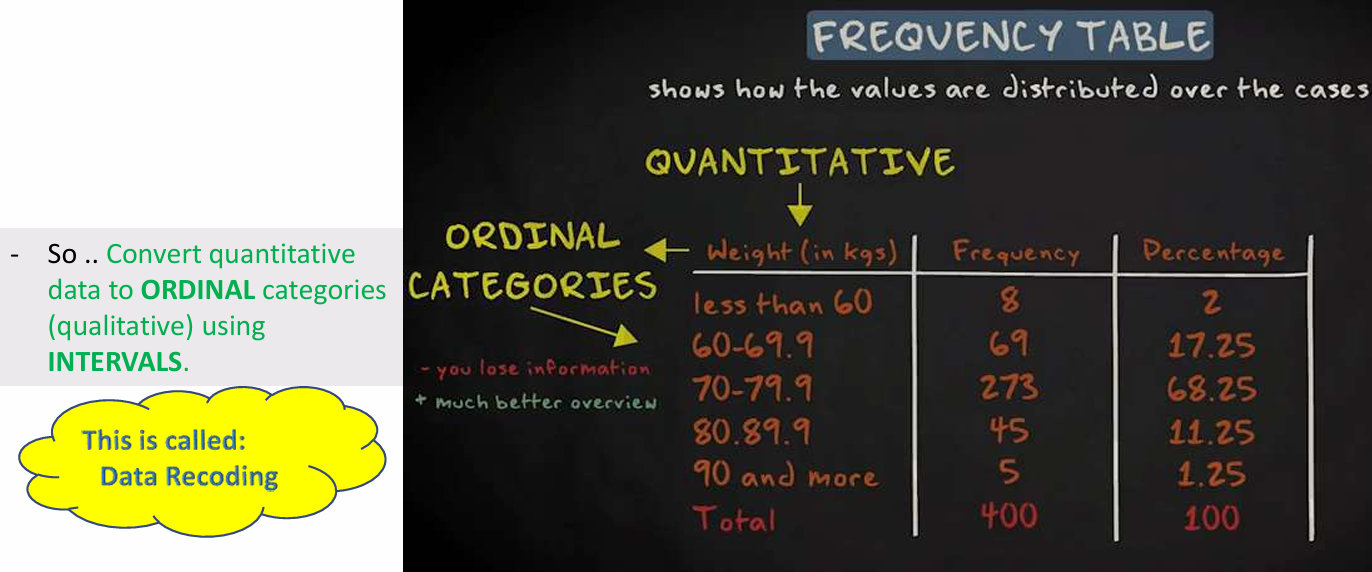 - So .. Convert quantitative
data to ORDINAL categories
(qualitative) using
INTERVALS.
This is called:
Data Recoding
FREQUENCY TABLE
shows how the values are distributed over the cases
QUANTITATIVE
ORDINAL
CATEGORIES
- you lose information
+ much better overview
Weight (in kgs) Frequency Percentage
less than 60 8 2
60-69.9 69 17.25
70-79.9 273 68.25
80.89.9 45 11.25
90 and more 5 1.25
Total 400 100